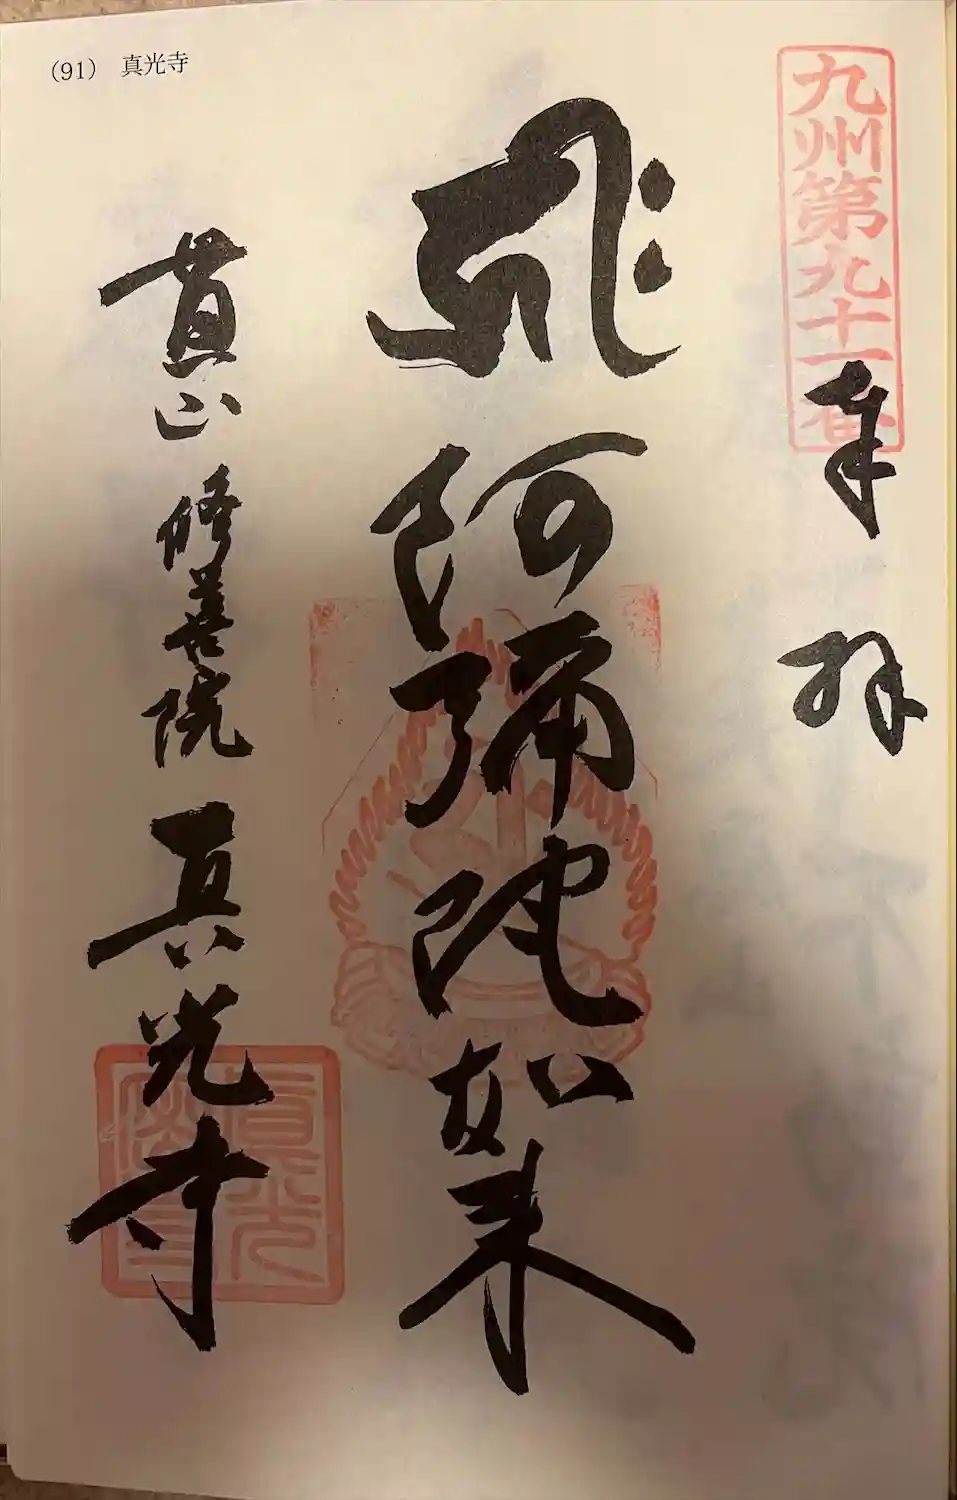 (91) 真光寺
九州第九十一番
奉拝
キリーク阿弥陀如来
修善院
真光寺